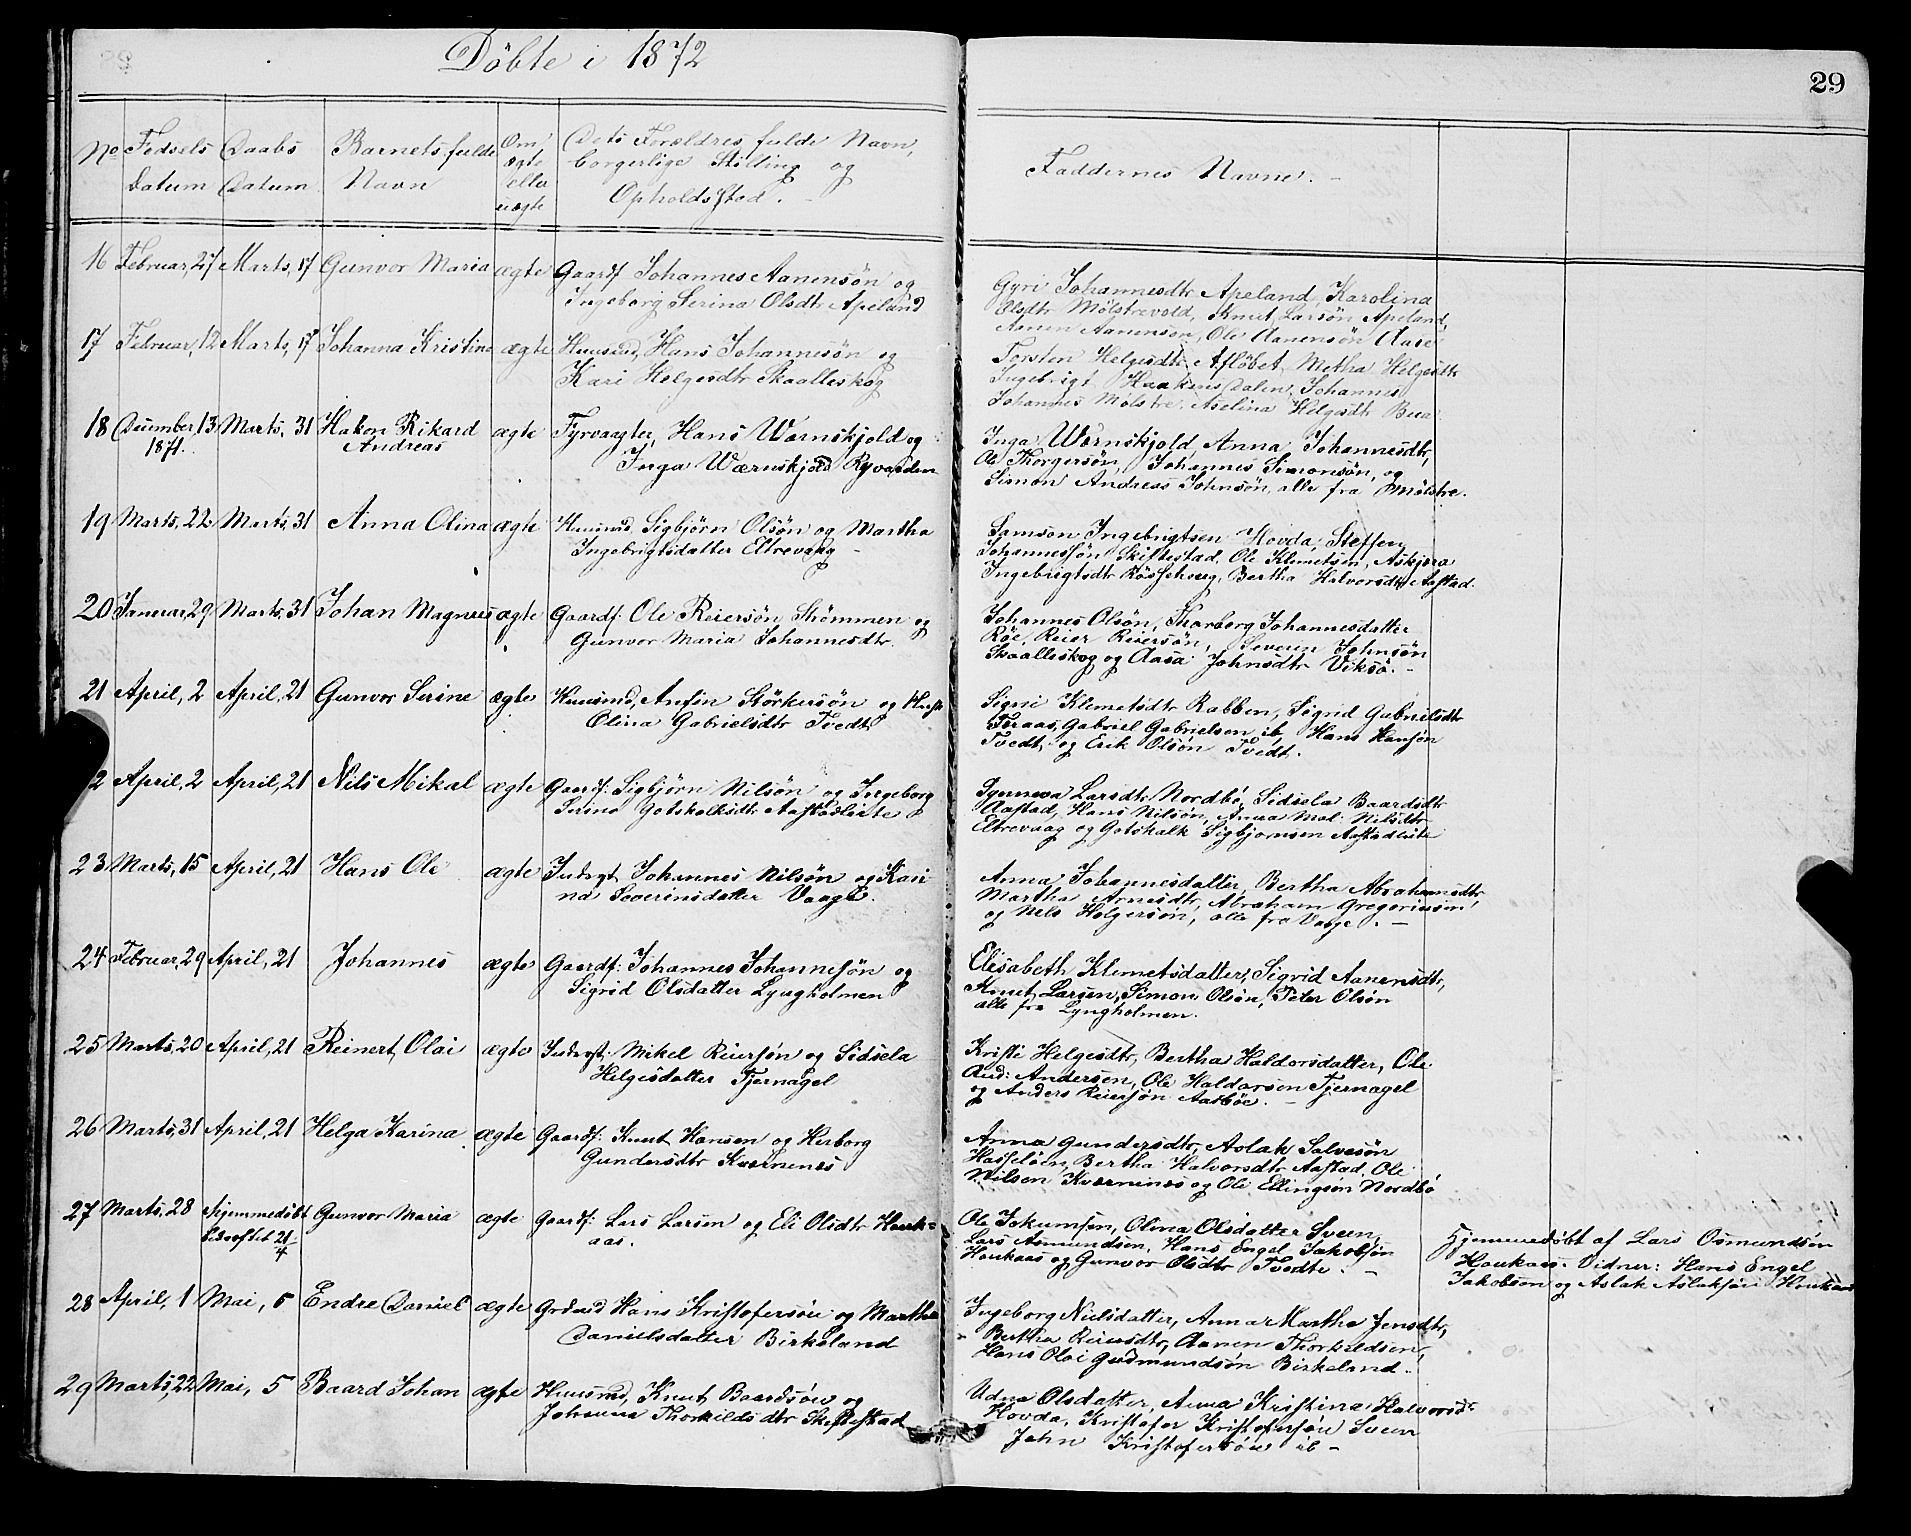 Döbte i 1872
29
No Fødsels Datum
Daabs Datum
Barnets fulde Navn
Om ægte eller uægte
Dets Forældres fulde Navn,
borgerlige Stilling og
Opholdsstad.
Faddernes Navne. -
16 Februar, 27 Marts, 17 Gunvor Maria ægte Gaardf Johannes Aanensön og
Ingeborg Serina Olsdtr Apeland
Gyri Johannesdtr Apeland, Karolina
Olsdtr Mølstrevold, Knut Larsön Apeland,
Aanen Aanenson, Ole Aanensön Aase
17 Februar, 12 Marts, 17 Johanna Kristine ægte Huusmd, Hans Johannesön og
Kari Helgesdtr Skaalleskog
Torsten Helgesdtr Afløbet, Metha Helgesdtr
Ingebrigt Haakens Dalen, Johannes
Johannes Mølstre, Aselina Helgesdtr Bua
18 December, 13 1871. Marts, 31 Hakon Rikard
Andreas ægte Fyrvaagter, Hans Wærnskjold og
Inga Wærnskjold Ryvarden
Inga Wærnskjold, Anna Johannesdtr,
Ole Thorgersön, Johannes Simonsön, og
Simon Andreas Johnsön, alle fra Mølstre.
19 Marts, 22 Marts, 31 Anna Olina ægte Huusmd. Sigbjörn Olsön og Martha
Ingebrigtsdatter Eltrevaag -
Samson Ingebrigtsen Hovda, Steffen
Johannessön Skiftestad, Ole Klemetsen, Askjæra
Ingebrigtsdtr Røsshoug, Bertha Halvorsdtr Aastad.
20 Januar, 29 Marts, 31 Johan Magnus ægte Gaardf: Ole Reiersön Strömmen og
Gunvor Maria Johannesdtr.
Johannes Olsön, Thorborg Johannesdatter
Röe, Reier Reiersön, Severin Johnsön
Skaalleskog og Aasa Johnsdtr Viksö. -
21 April, 2 April, 21 Gunvor Serine ægte Huusmd, Anfin Störkersön og
Olina Gabrielsdtr Tvedt
Signi Klemetsdtr Rabben, Sigrid Gabrielsdtr
Foraas, Gabriel Gabrielsen ib, Hans Hansön
Tvedt, og Erik Olsön Tvedt.
2 April, 2 April, 21 Nils Mikal ægte Gaardf: Sigbjörn Nilsön og Ingeborg
Serine Gotskalksdtr Aastadleite
Synneva Larsdtr Nordbö, Sidsela Baardsdtr
Aastad, Hans Nilsön, Anna Mal: Nilsdtr
Eltrevaag og Gotskalk Sigbjornsen Aastadleite
23 Marts, 15 April, 21 Hans Ole ægte Indergt Johannes Nilsön og Kari
na Severinsdatter Vaage.
Anna Johannesdatter, Bertha Abrahamsdtr,
Martha Arnesdtr, Abraham Gregoriussen,
og Nels Holgersön, alle fra Vaage. -
24 Februar, 29 April, 21 Johannes ægte Gaardf: Johannes Johannesön og
Sigrid Olsdatter Lyngholmen
Elisabeth Klemetsdatter, Sigrid Aanensdtr,
Knut Larsen, Simon Olsön, Peter Olsön
alle fra Lyngholmen.
25 Marts, 20 April, 21 Reinert Olai ægte Indergt: Mikel Reiersön og Sidsela
Helgesdatter Tjernagel
Kristi Helgesdtr, Bertha Haldorsdatter, Ole
And: Andersen, Ole Haldorsen Tjernagel
og Anders Reiersön Aasböe. -
26 Marts, 31 April, 21 Helga Karina ægte Gaardf: Knut Hansen og Herborg
Gundersdtr Kvernenes
Anna Gundersdtr, Aslak Salvesön
Hasselöen, Bertha Halvorsdtr Aastad, Ole
Nilsen Kværnenes og Ole Ellingsön Nordbö
27 Marts, 28 Hjemmedöbt
bekræftet 21/4 Gunvor Maria ægte Gaardf: Lars Larsen og Eli Olsdtr Hauk=
aas.
Ole Jokumsen, Olina Olsdatter Sveen,
Lars Asmundsen, Hans Engel Jakobsön
Houkaas og Gunvor Olsdtr Tvedte. -
Hjemmedøbt af Lars Osmundsön
Houkaas. Vidner: Hans Engel
Jakobsen og Aslak Aslaksön Houkaas
28 April, 1 Mai, 5 Endre Daniel ægte Grdmd Hans Kristofersön og Martha
Danielsdatter Birkeland
Ingeborg Nielsdatter, Anna Martha Jensdtr,
Bertha Reiersdtr, Aanen Thorkildsen,
Hans Olai Gudmundsön Birkeland.
29 Marts, 22 Mai, 5 Baard Johan ægte Huusmd, Knut Baardsön og
Johanna Thorkildsdtr Skiftestad
Udna Olsdatter, Anna Kristina Halvorsdr
Hovda, Kristofer Kristofersön Sveen
John Kristofersön ib -